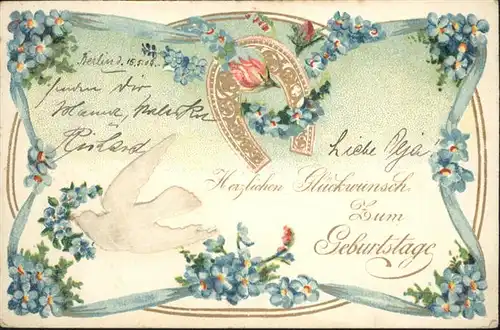 Berlin d. 15.5.08.
senden Dir
Mama,
Richard
Liebe Olja!
Herzlichen Glückwunsch
Zum
Geburtstage